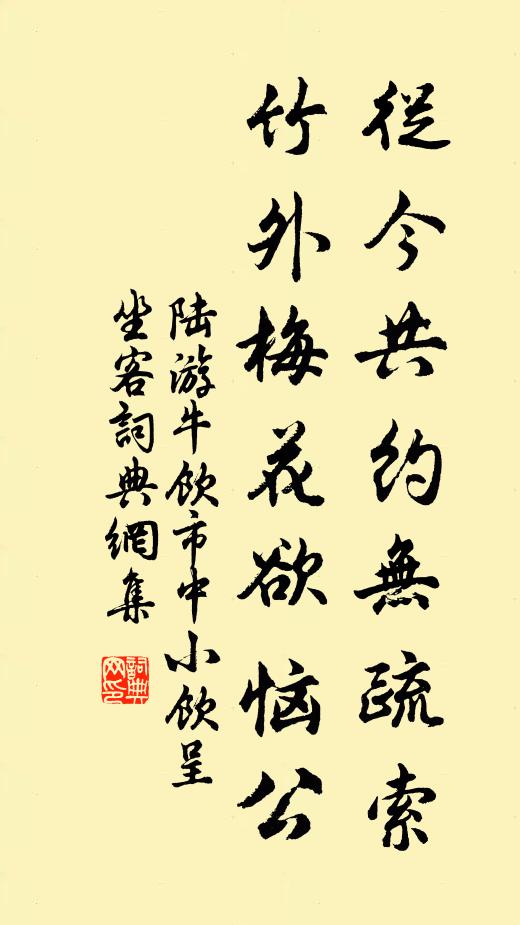 從今共約無疏索
竹外梅花欲惱公
陆游牛飲市中小飲呈
坐客詞典網集
詞典网印